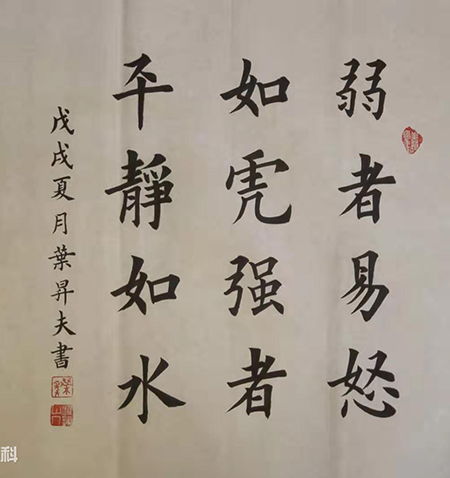 弱者易怒
如虎强者
平靜如水
戊戌夏月葉昇夫書
科